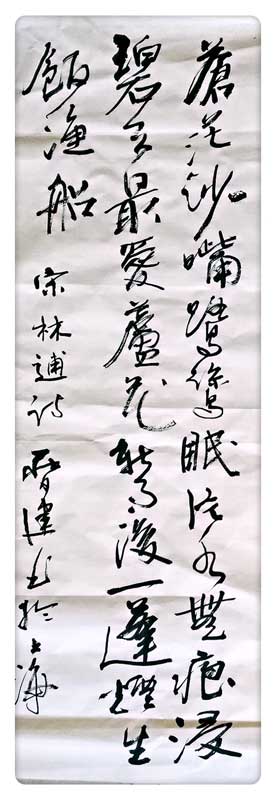 蒼茫沙嘴鷺鷥眠片水無痕浸
碧天最愛蘆花雨後一蓬煙火
飯漁船 宋林逋詩 書於上海